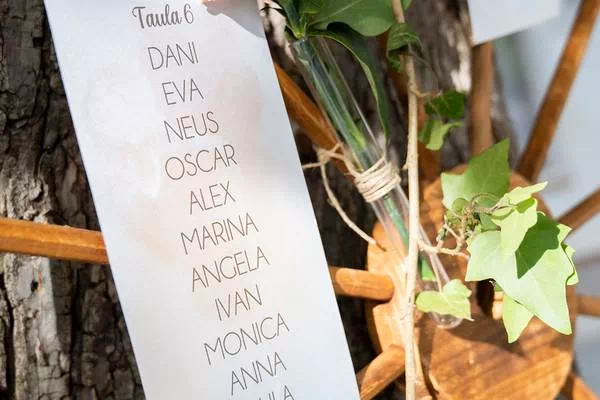 Taula 6
DANI
EVA
NEUS
OSCAR
ALEX
MARINA
ANGELA
IVAN
MONICA
ANNA